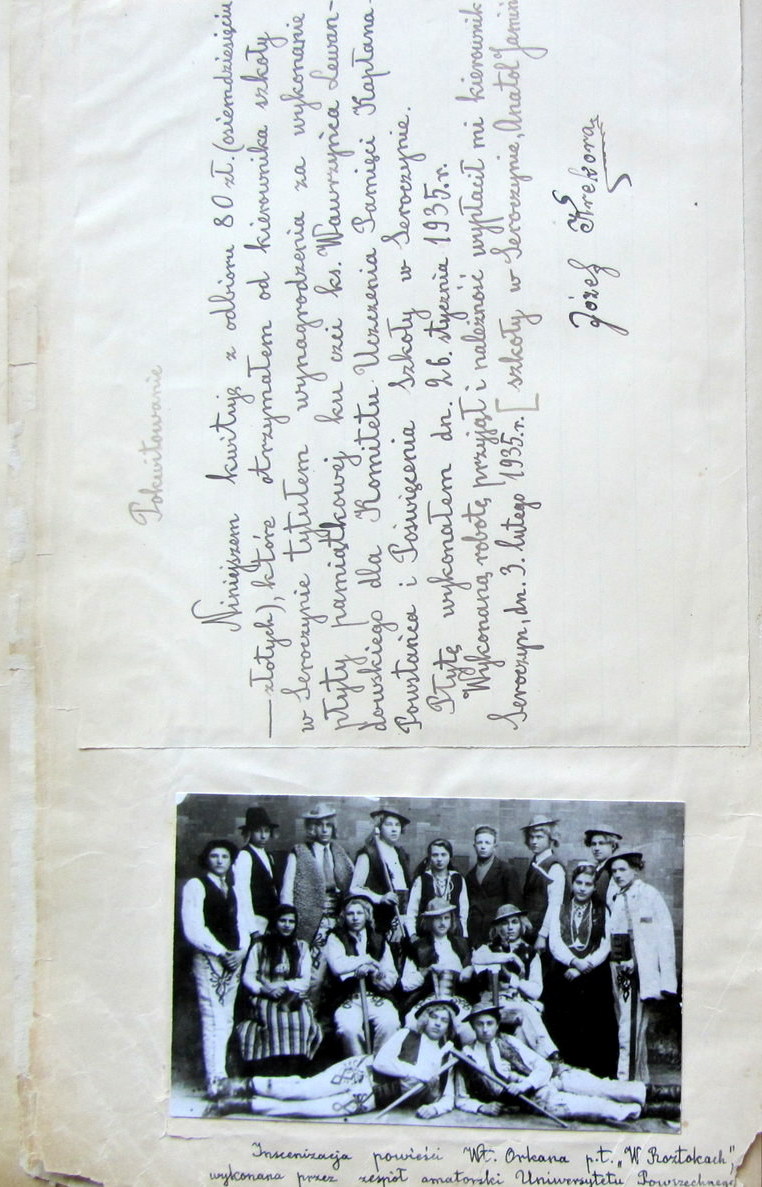 Pokwitowanie
Niniejszem kwituję z odbioru 80 zł. (osiemdziesięciu
złotych), które otrzymałem od kierownika szkoły
w Seroczynie tytułem wynagrodzenia za wykonanie
płyty pamiątkowej ku czci ks. Wawrzyńca Lewan-
dowskiego dla Komitetu Uczczenia Pamięci Kapłana-
Powstańca i Poświęcenia Szkoły w Seroczynie.
Płytę wykonałem dn. 26. stycznia 1935.r.
Wykonaną robotę przyjął i należność wypłacił mi kierownik
Seroczyn, dn. 3. lutego 1935.r. [szkoły w Seroczynie, Anatol Jamin
Józef Krekora
Inscenizacja powieści Wł. Orkana p.t. „W Roztokach",
wykonana przez zespół amatorski Uniwersytetu Powszechnego